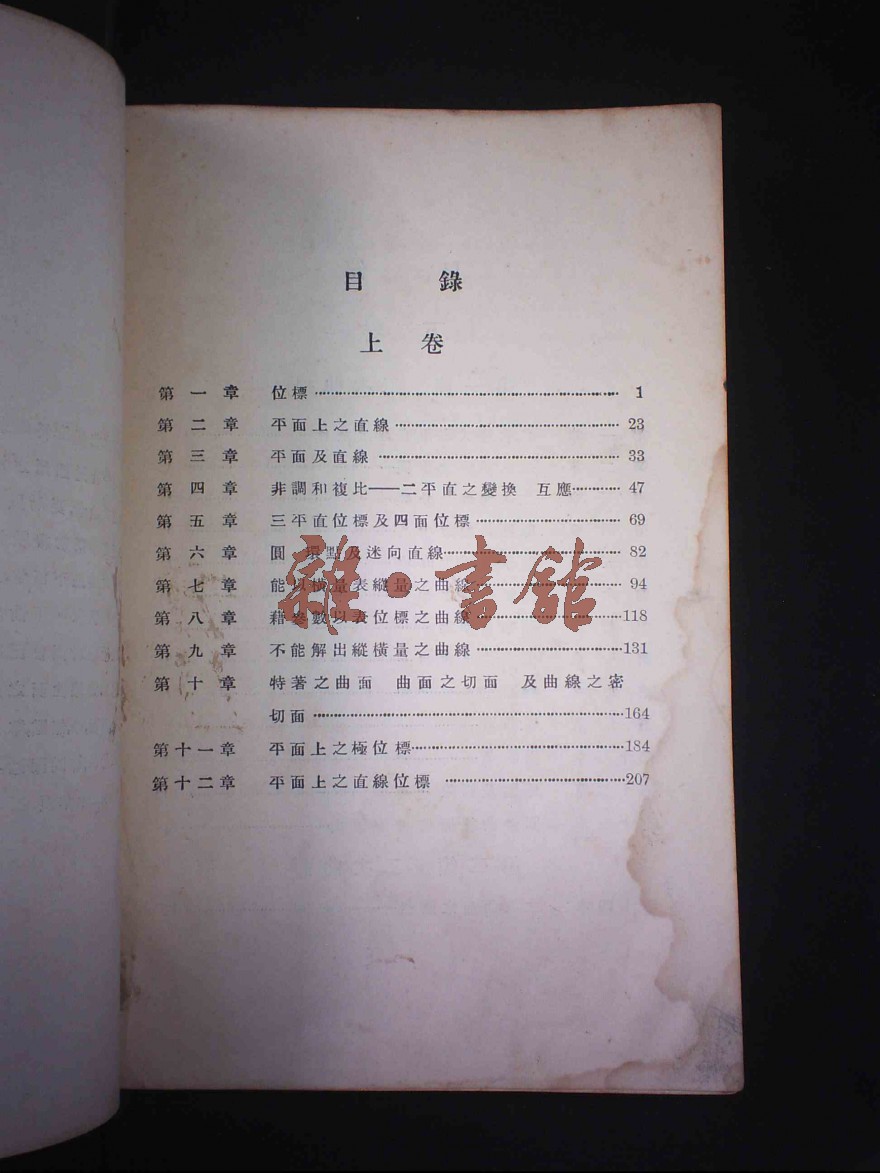 目錄
上卷
第一章 位標 1
第二章 平面上之直線 23
第三章 平面及直線 33
第四章 非調和複比——二平直之變換 互應 47
第五章 三平直位標及四面位標 69
第六章 圓 環點及迷向直線 82
第七章 能以橫量表縱量之曲線 94
第八章 藉參數以表位標之曲線 118
第九章 不能解出縱橫量之曲線 131
第十章 特著之曲面 曲面之切面 及曲線之密
切面 164
第十一章 平面上之極位標 184
第十二章 平面上之直線位標 207
雜·書館